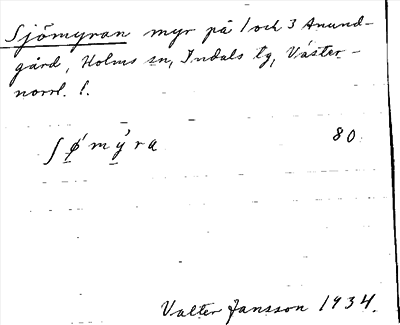 Sjömyran myr på 1 och 3 Anund-
gård, Holms sn, Indals tg, Väster-
norrl. l.
ʃø´my´ra 80.
Valter Jansson 1934.